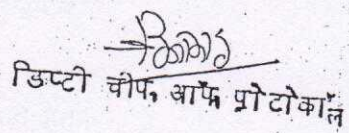 डिप्टी चीफ, ऑफ प्रोटोकॉल